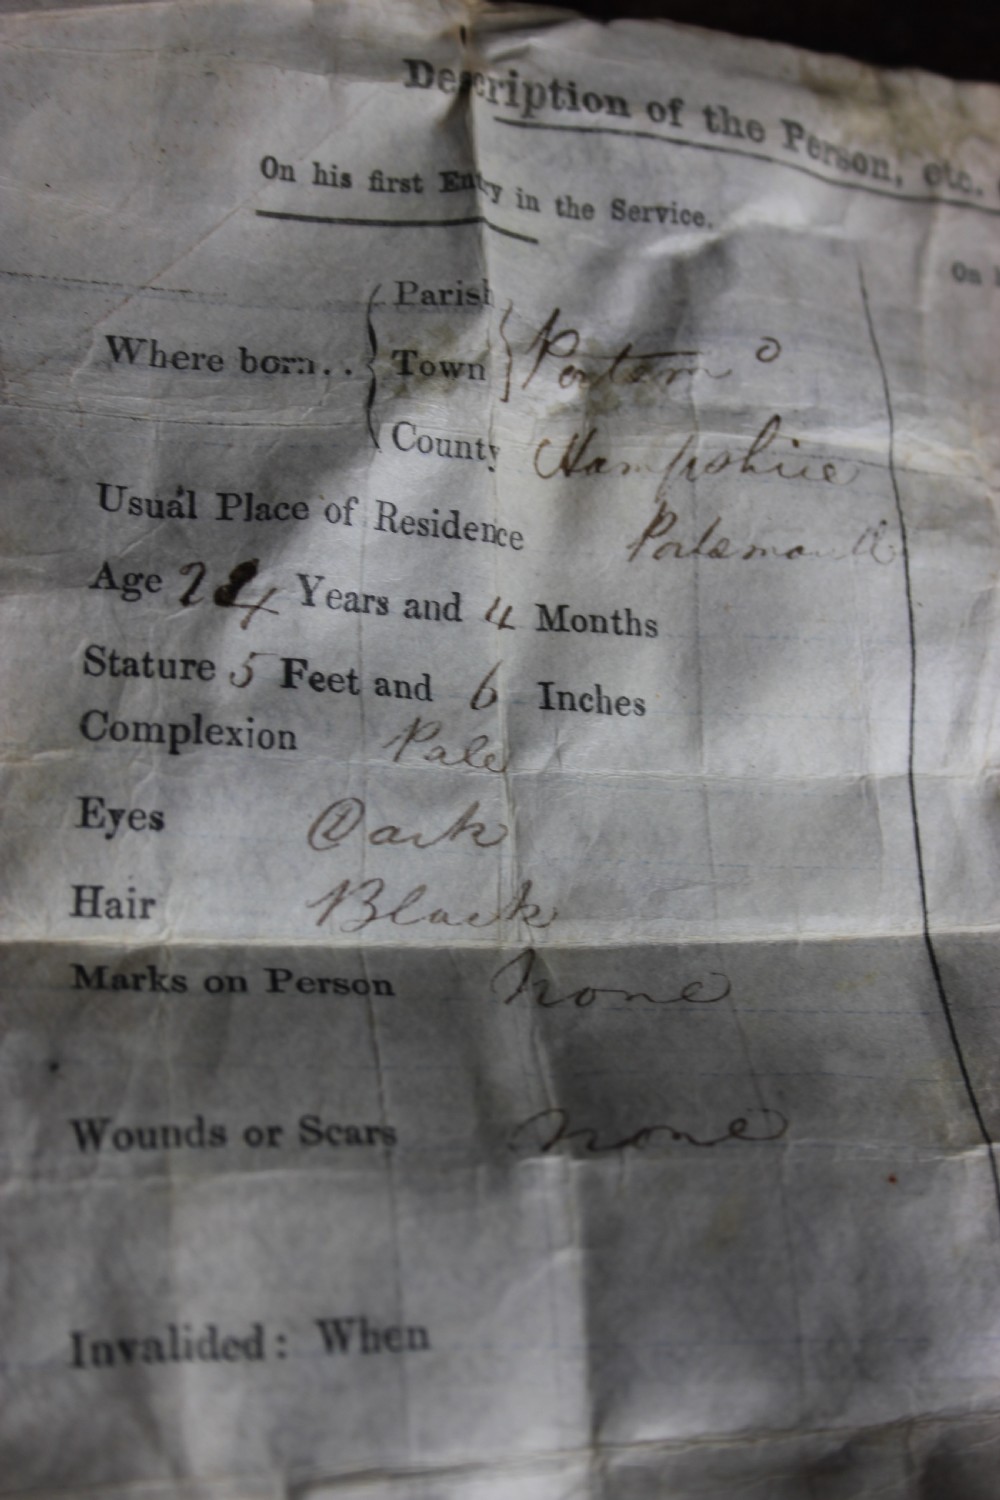 Description of the Person, etc.
On his first Entry in the Service.
On
Parish
Where born.. Town
County Hampshire
Usual Place of Residence Portsmouth
Age 24 Years and 4 Months
Stature 5 Feet and 6 Inches
Complexion Pale
Eyes Dark
Hair Black
Marks on Person none
Wounds or Scars none
Invalided: When